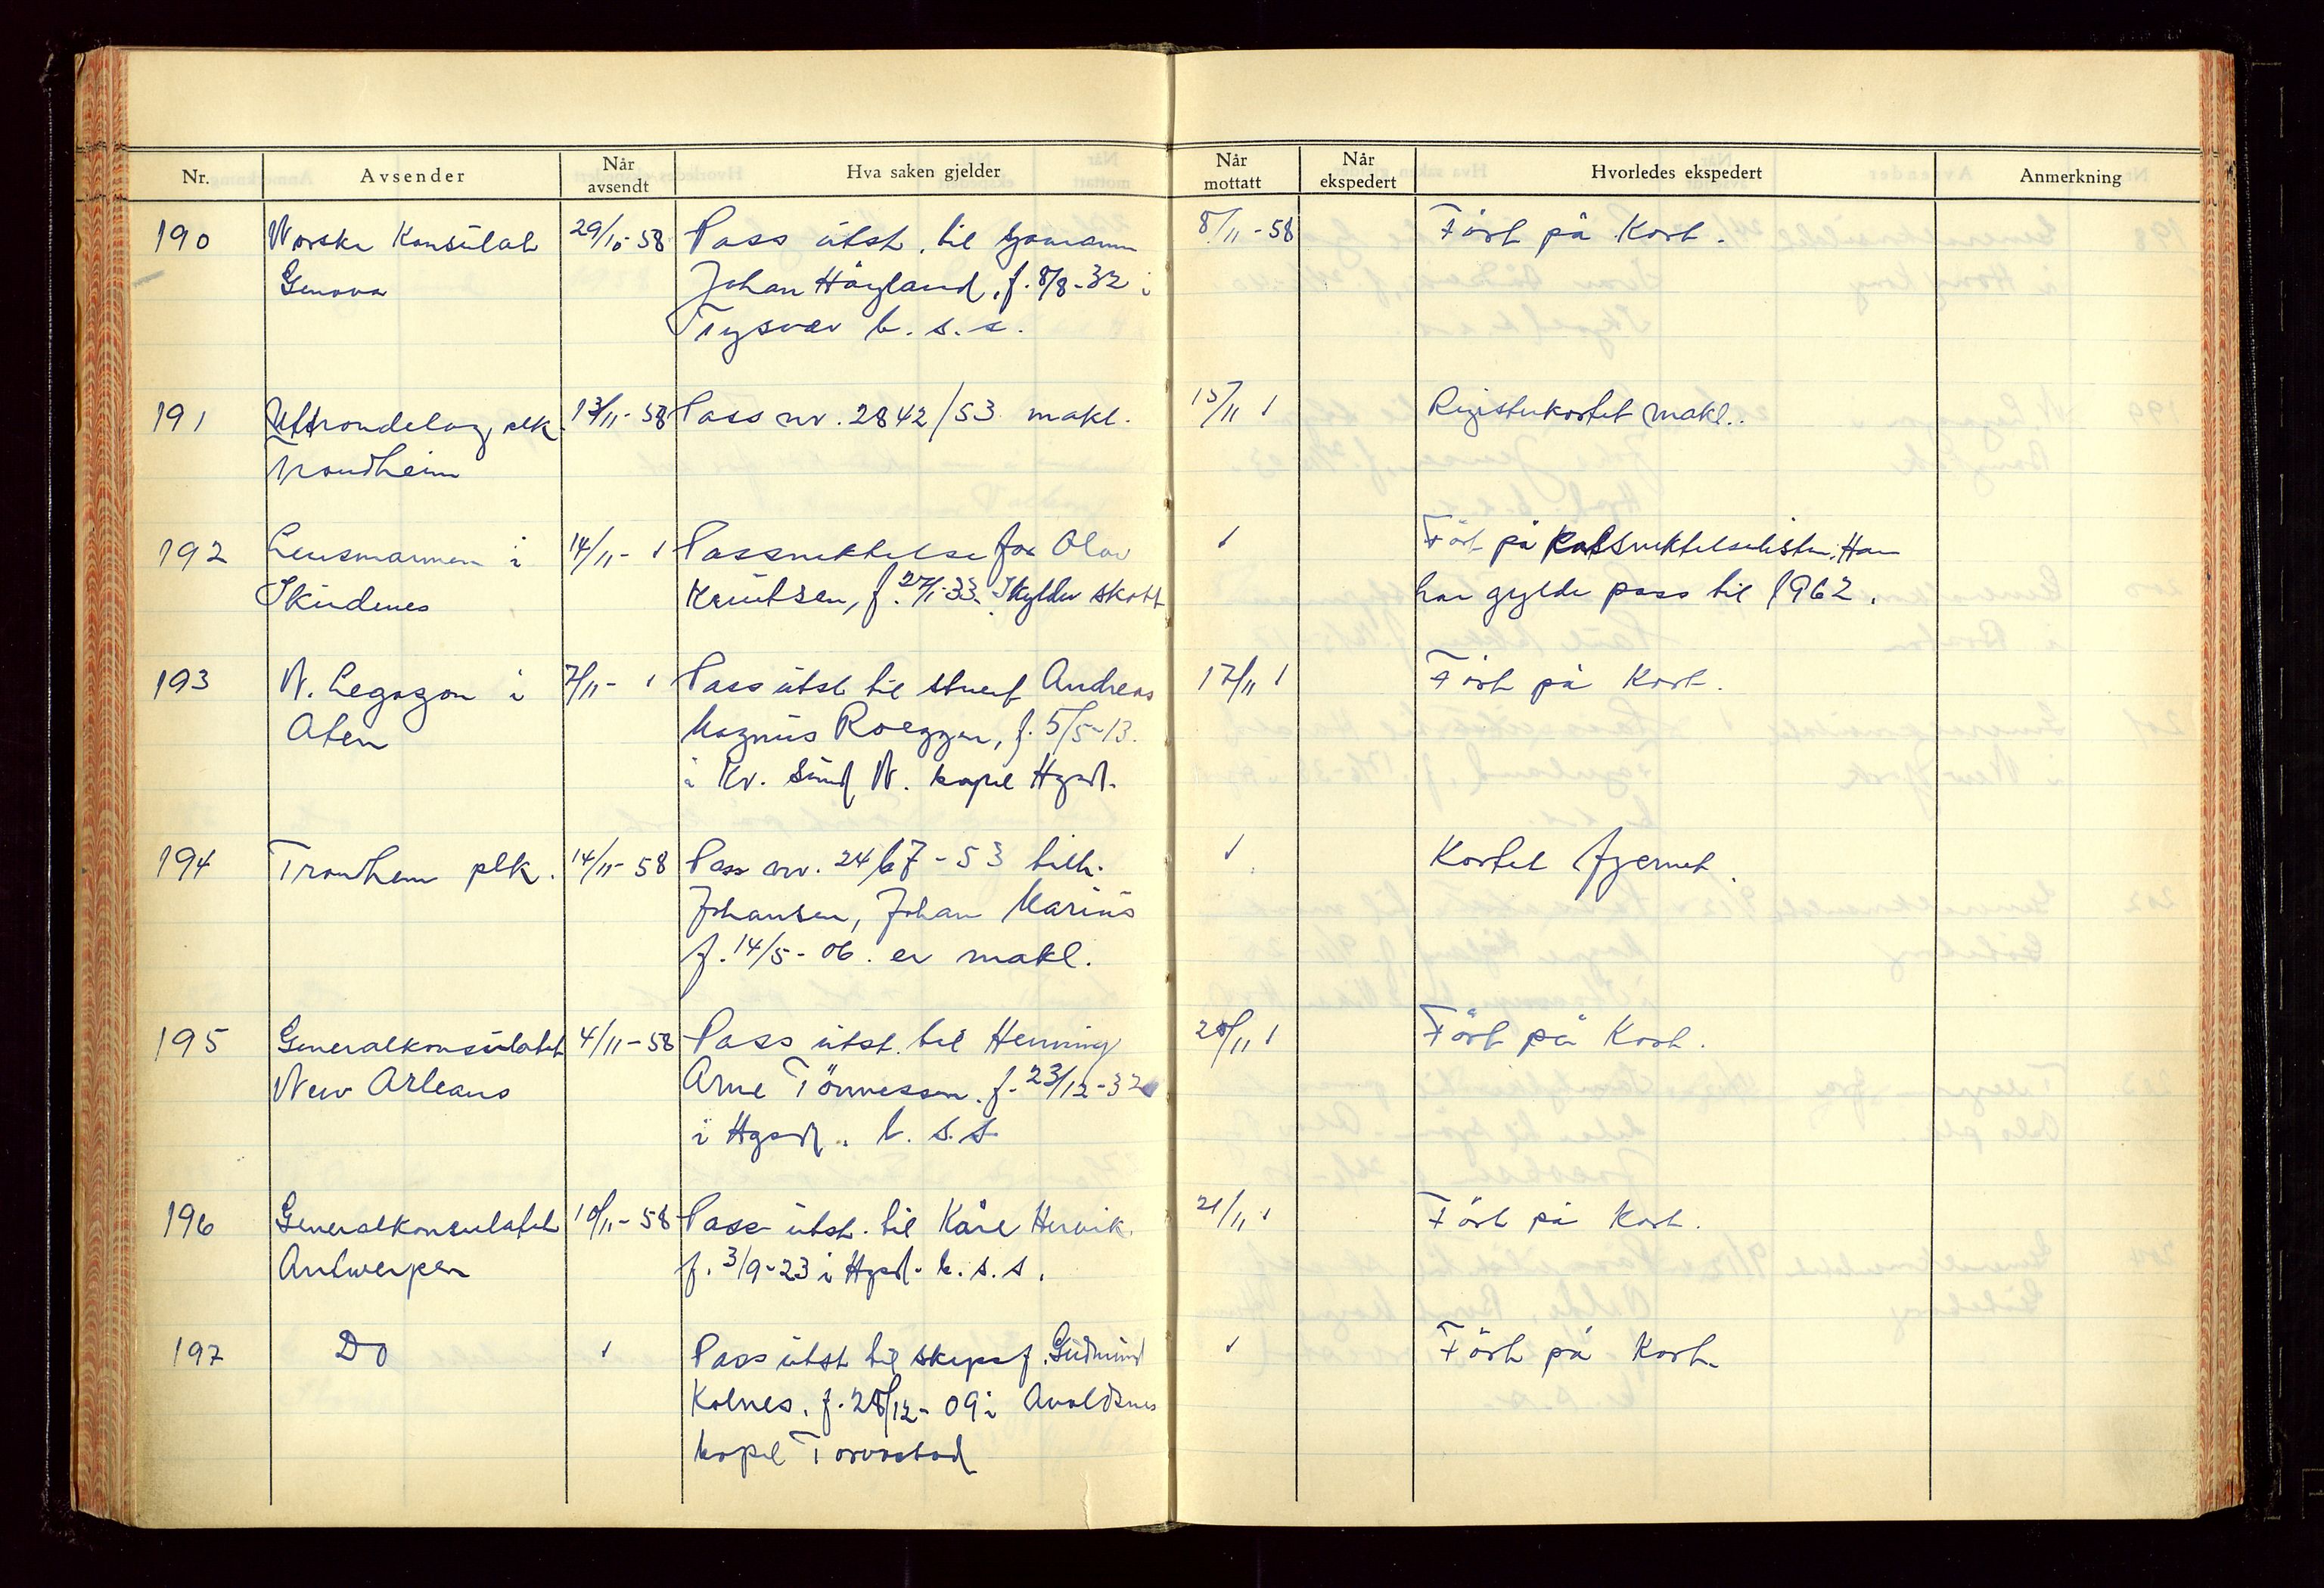 Nr.
Avsender
Når avsendt
Hva saken gjelder
Når mottatt
Når ekspedert
Hvorledes ekspedert
Anmerkning
190 Norske Konsulat 29/10-58 Pass utst. til 8/11-58 Ført på Kort.
Genova Johan Høyland, f. 8/8-32 i
Tysvær b. s. s.
191 plk. 13/11-58 Pass nr. 2842/53 makl. 15/11 Registerkortet makl.
Trondheim
192 Lensmannen i 14/11- Passnektelse for Olav Ført på Passnektelselisten. Han
Skudenes Knutsen, f. 27/1-33. Skylder skatt har gyldi pass til 1962.
193 N. Legasjon i 7/11- Pass utst til stuert Andreas 17/11 Ført på Kort.
Aten Magnus Roegger, f. 5/5-13.
i Kv. Sund N. bopel Hgsd.
194 Trondheim plk. 14/11-58 Pass nr. 2467-53 tilh. Kortet fjernet.
Johansen, Johan Marius
f. 14/5-06. er makl.
195 Generalkonsulatet 4/11-58 Pass utst. til Henning 20/11 Ført på Kort.
New Orleans Arne Tönnessen. f. 23/12-32
i Hgsd. b. s. s
196 Generalkonsulatet 10/11-58 Pass utst. til Kåre Hervik. 21/11 Ført på Kort.
Antwerpen f. 3/9-23 i Hgsd. b. s. s.
197 Do Pass utst til skipsf. Gudmund Ført på Kort.
Kolnes. f. 28/12-09 i Avaldsnes
bopel Torvastad